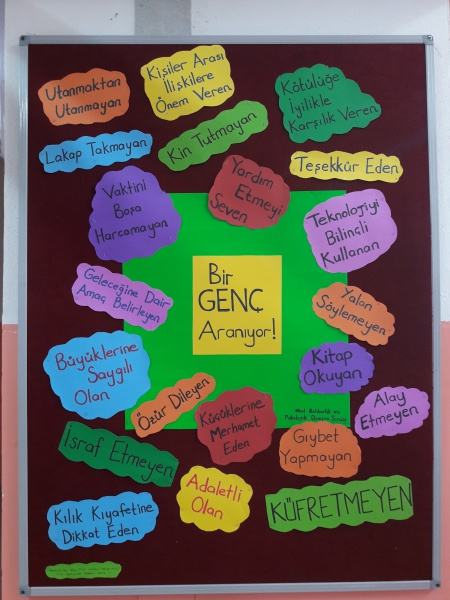 Utanmaktan
Utanmayan
Kişiler Arası
İlişkilere
Önem Veren
Kötülüğe
İyilikle
Karşılık Veren
Lakap Takmayan
Kin Tutmayan
Teşekkür Eden
Vaktini
Boşa
Harcamayan
Yardım
Etmeyi
Seven
Teknolojiyi
Bilinçli
Kullanan
Geleceğine Dair
Amaç Belirleyen
Bir
GENÇ
Aranıyor!
Yalan
Söylemeyen
Büyüklerine
Saygılı
Olan
Kitap
Okuyan
Özür Dileyen
Küçüklerine
Merhamet
Eden
Alay
Etmeyen
İsraf Etmeyen
Gıybet
Yapmayan
Adaletli
Olan
KÜFRETMEYEN
Kılık Kıyafetine
Dikkat Eden